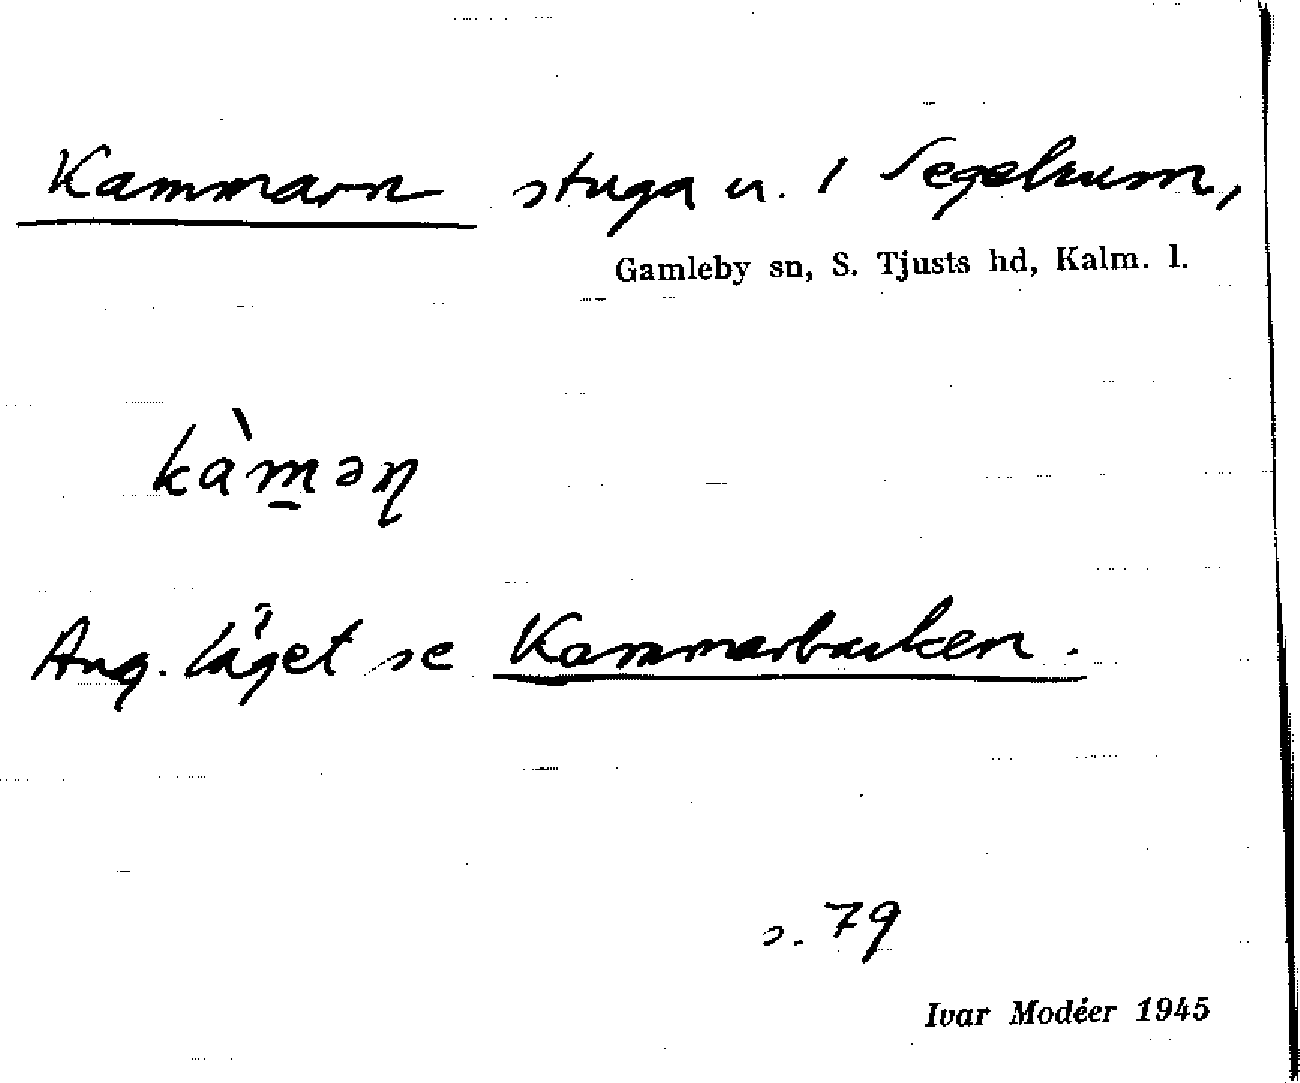 Kammarn stuga u. 1 Segelrum,
Gamleby sn, S. Tjusts hd, Kalm. l.
kàm̲əɳ
Ang. läget se Kammarbacken.
s. 79
Ivar Modéer 1945